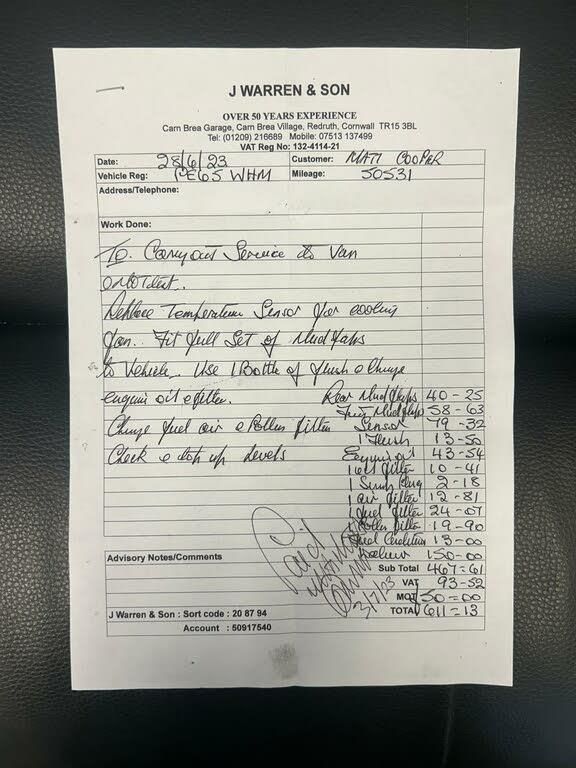 J WARREN & SON
OVER 50 YEARS EXPERIENCE
Carn Brea Garage, Carn Brea Village, Redruth, Cornwall TR15 3BL
Tel: (01209) 216689 Mobile: 07513 137499
VAT Reg No: 132-4114-21
Date: 28/6/23 Customer: MATT COOPER
Vehicle Reg: PE65 WHM Mileage: 50531
Address/Telephone:
Work Done:
To Carryout Service to Van
Replace Temperature Sensor for cooling
fan. Fit full Set of Mud flaps
to Vehicle. Use 1 Bottle of flush & Change
engine oil & filter. Rear Mud flaps 40-25
Front Mud flaps 58-63
Change fuel air & Pollen filter Sensor 79-32
1 Flush 13-50
Check & top up Levels Engine oil 43-54
1 oil filter 10-41
1 Sump Plug 2-18
1 air filter 12-81
1 fuel filter 24-07
1 Pollen filter 19-90
Fuel 13-00
Labour 150-00
Advisory Notes/Comments
Paid
3/7/23
Sub Total 467=61
VAT 93-52
MOT 50=00
TOTAL 611=13
J Warren & Son : Sort code : 20 87 94
Account : 50917540